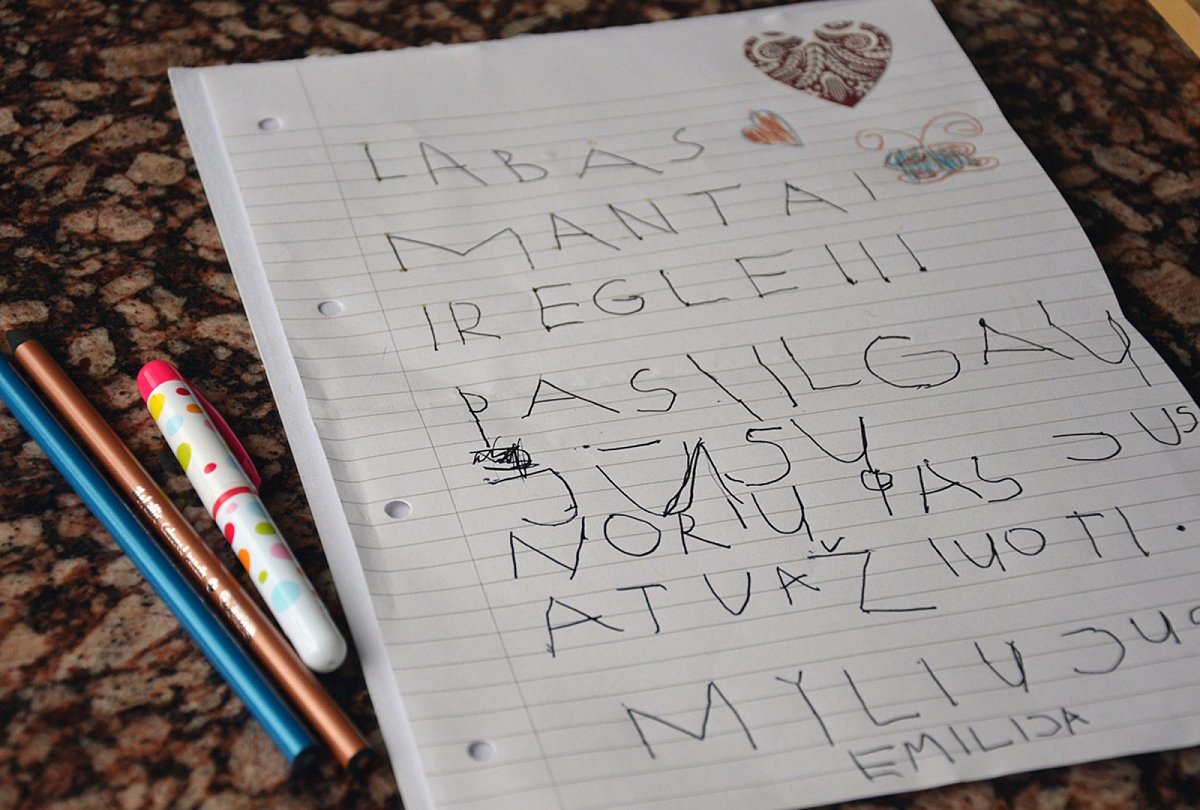 LABAS
MANTAI
IR EGLE III
PASIILGAU
JŪSU
NORIU PAS JUS
ATVAŽIUOTI.
MYLIU JUS
EMILIJA